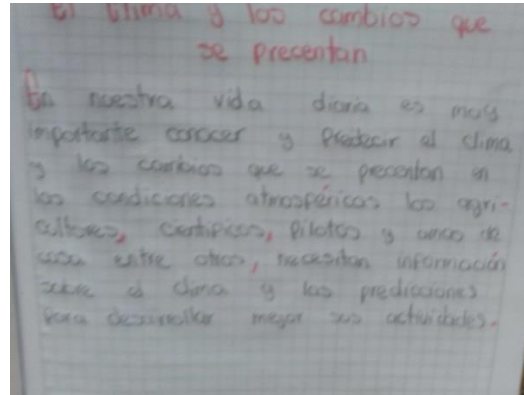 El Clima y los cambios que
se precentan
En nuestra vida diaria es muy
importante conocer y Predecir el clima
y los cambios que se precentan en
las condiciones atmosféricas los agri-
cultores, científicos, Pilotos y amas de
casa entre otros, necesitan información
sobre el clima y las predicciones
para desarrollar mejor sus actividades.